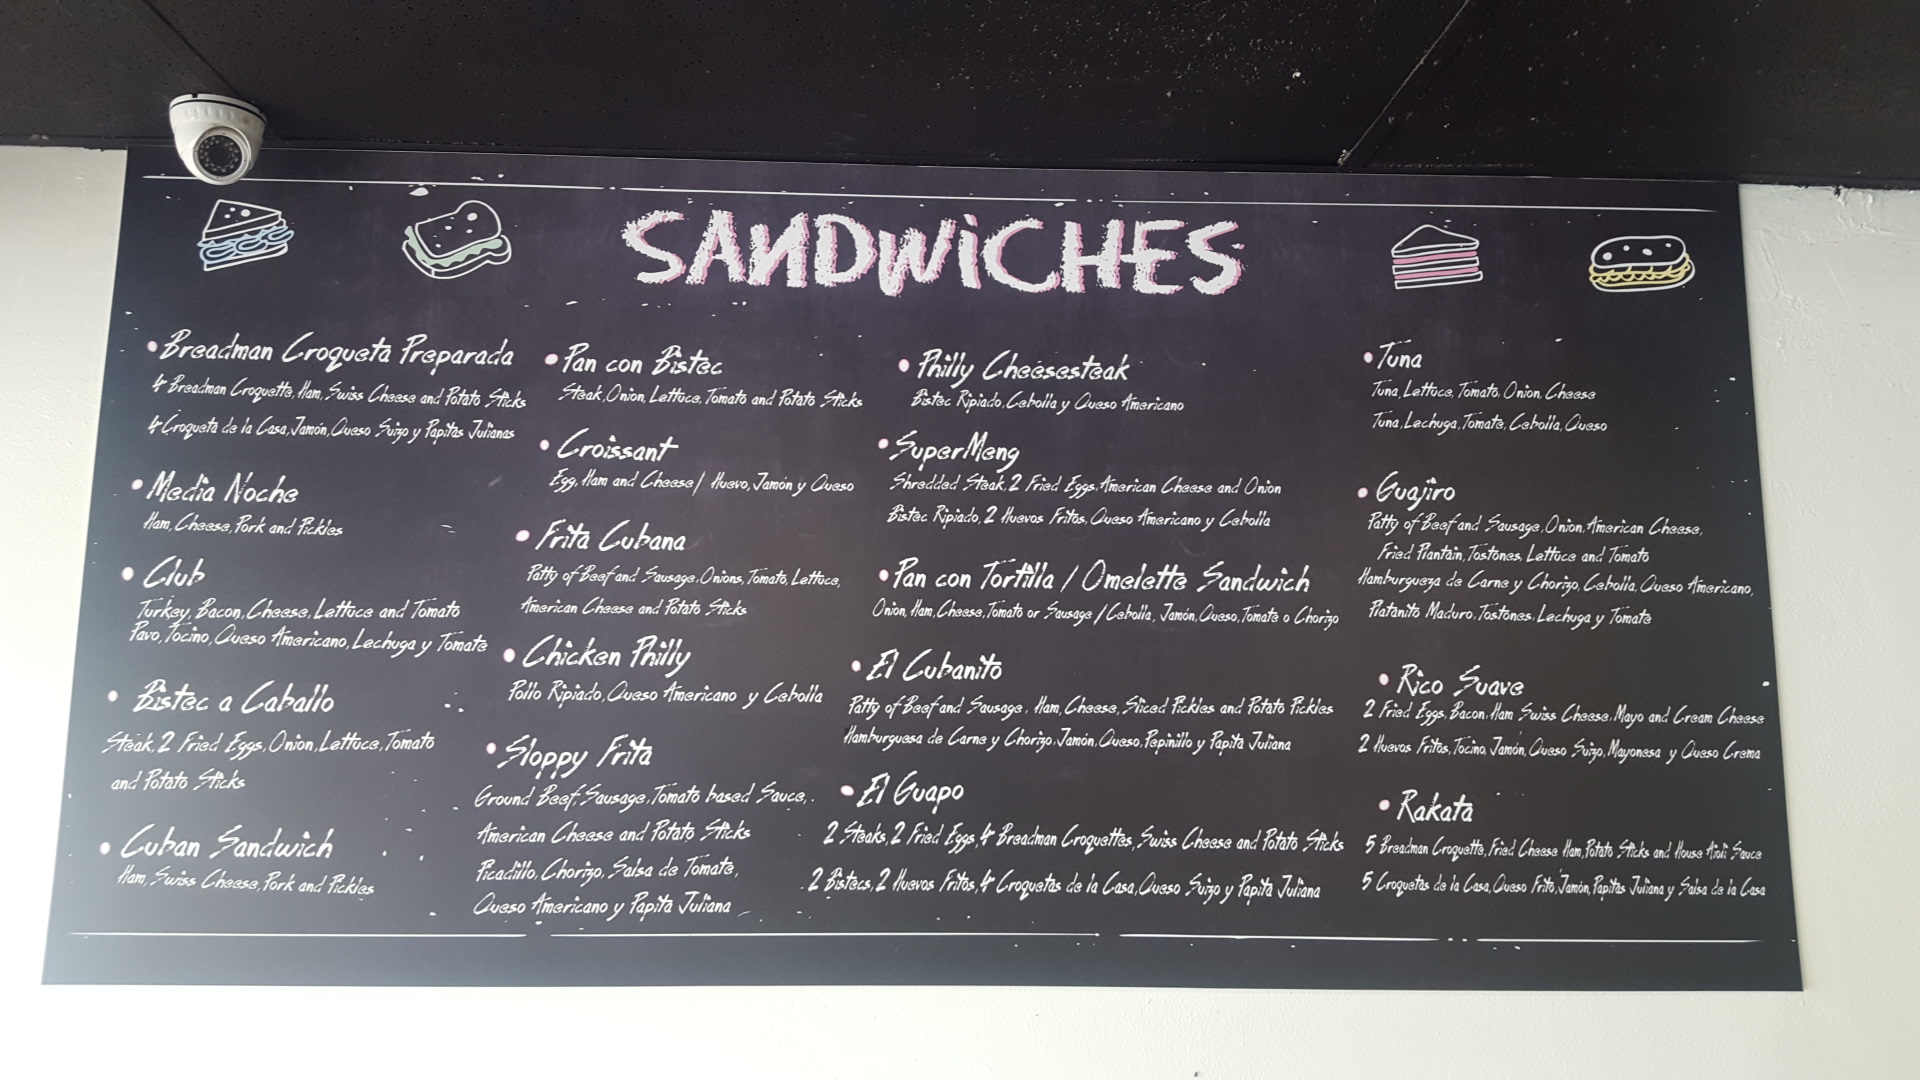 SANDWiCHES
•Breadman Croqueta Preparada
4 Breadman Croquette, Ham, Swiss Cheese and Potato Sticks
4 Croqueta de la Casa, Jamón, Queso Suizo y Papitas Julianas
•Media Noche
Ham, Cheese, Pork and Pickles
•Club
Turkey, Bacon, Cheese, Lettuce and Tomato
Pavo, Tocino, Queso Americano, Lechuga y Tomate
•Bistec a Caballo
Steak, 2 Fried Eggs, Onion, Lettuce, Tomato
and Potato Sticks
•Cuban Sandwich
Ham, Swiss Cheese, Pork and Pickles
•Pan con Bistec
Steak, Onion, Lettuce, Tomato and Potato Sticks
•Croissant
Egg, Ham and Cheese / Huevo, Jamón y Queso
•Frita Cubana
Patty of Beef and Sausage, Onions, Tomato, Lettuce,
American Cheese and Potato Sticks
•Chicken Philly
Pollo Ripiado, Queso Americano y Cebolla
•Sloppy Frita
Ground Beef, Sausage, Tomato based Sauce,
American Cheese and Potato Sticks
Picadillo, Chorizo, Salsa de Tomate,
Queso Americano y Papita Juliana
•Philly Cheesesteak
Bistec Ripiado, Cebolla y Queso Americano
•SuperMeng
Shredded Steak, 2 Fried Eggs, American Cheese and Onion
Bistec Ripiado, 2 Huevos Fritos, Queso Americano y Cebolla
•Pan con Tortilla / Omelette Sandwich
Onion, Ham, Cheese, Tomato or Sausage / Cebolla, Jamón, Queso, Tomate o Chorizo
•El Cubanito
Patty of Beef and Sausage, Ham, Cheese, Sliced Pickles and Potato Pickles
Hamburguesa de Carne y Chorizo, Jamón, Queso, Pepinillo y Papita Juliana
•El Guapo
2 Steaks, 2 Fried Eggs, 4 Breadman Croquettes, Swiss Cheese and Potato Sticks
2 Bistecs, 2 Huevos Fritos, 4 Croquetas de la Casa, Queso Suizo y Papita Juliana
•Tuna
Tuna, Lettuce, Tomato, Onion, Cheese
Tuna, Lechuga, Tomate, Cebolla, Queso
•Guajiro
Patty of Beef and Sausage, Onion, American Cheese,
Fried Plantain, Tostones, Lettuce and Tomato
Hamburgueza de Carne y Chorizo, Cebolla, Queso Americano,
Platanito Maduro, Tostones, Lechuga y Tomate
•Rico Suave
2 Fried Eggs, Bacon, Ham Swiss Cheese, Mayo and Cream Cheese
2 Huevos Fritos, Tocino, Jamón, Queso Suizo, Mayonesa y Queso Crema
•Rakata
5 Breadman Croquette, Fried Cheese Ham, Potato Sticks and House Aioli Sauce
5 Croquetas de la Casa, Queso Frito, Jamón, Papitas Juliana y Salsa de la Casa